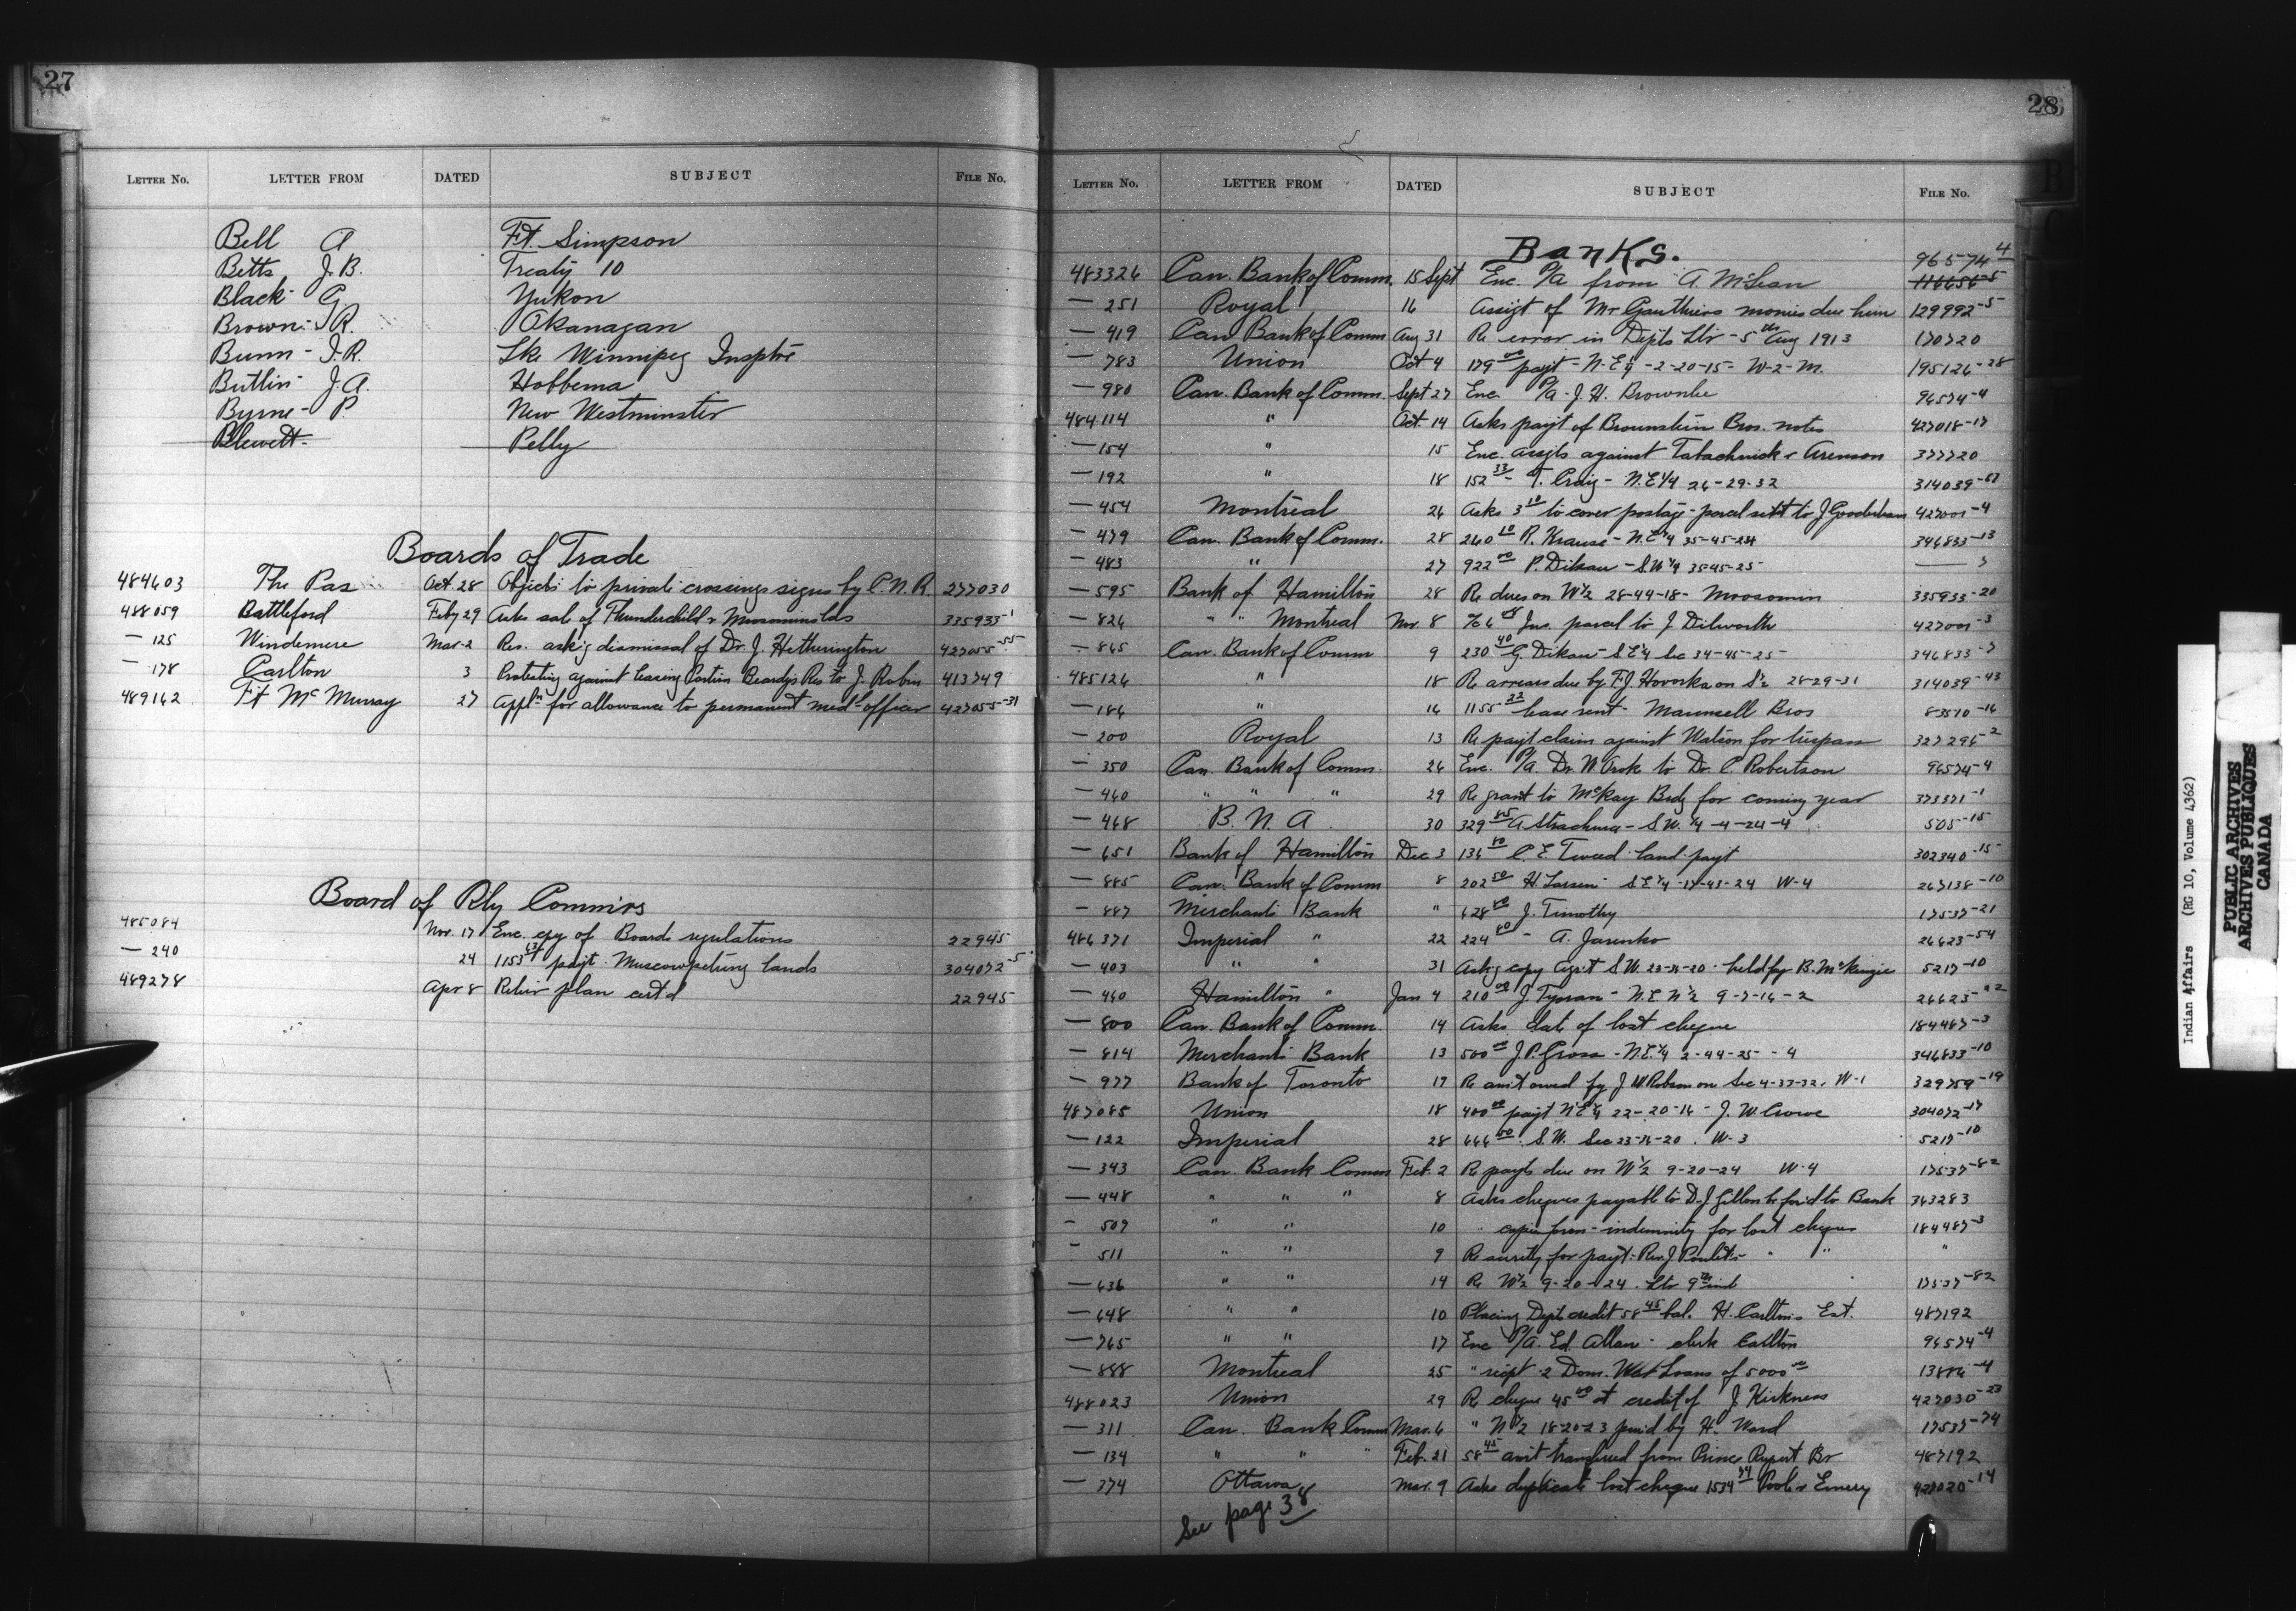 27
LETTER NO. LETTER FROM DATED SUBJECT FILE NO.
Bell A Ft. Simpson
Betts J.B. Treaty 10
Black G. Yukon
Brown J.R. Okanagan
Bunn - J.R. Lke Winnipeg Insptre
Butlin J.A. Hobbema
Byrne - P. New Westminster
Blewett Pelly
Boards of Trade
484603 The Pas Oct. 28 Objects to private crossings signs by C.N.R. 277030
488059 Battleford Feby 29 Asks sale of Thunderchild & Moosomin lds 335933-1
— 125 Windemere Mar-2 Res. ask'g dismissal of Dr. J. Hetherington 427055-55
— 178 Carlton 3 Protesting against leasing Portion Beardys Res to J. Rabin 413749
489162 Ft McMurray 27 Appln for allowance to permanent med-officer 427055-31
Board of Rly Commirs
485084 Nov. 17 Enc. cpy of Boards regulations 22945
— 240 24 1153 payt. Muscowpetung lands 304072-5
489278 Apr 8 plan cert'd 22945
28
B
C
LETTER NO. LETTER FROM DATED SUBJECT FILE NO.
BANKS. 96574-4
483326 Can. Bank of Comm. 15 Sept Enc. P/A from A. McLean 116656-5
— 251 Royal 16 Assigt of Mr Gauthiers monies due him 129992-5
— 419 Can Bank of Comm Aug 31 Re error in Depts Ltr - 5th Aug 1913 170720
— 783 Union Oct 4 179 00 payt - N.E¼ - 2-20-15- W-2-M. 195126-28
— 980 Can. Bank of Comm. Sept 27 Enc. P/A - J.H. Brownlee 96574-4
484114 " Oct. 14 Asks payt of Brownstein Bros. notes 427018-17
— 154 " 15 Enc. assgts against Tabachnick & Arenson 377720
— 192 " 18 152 33 - T. Craig - N.E¼ 26-29-32 314039-51
— 454 Montreal 26 Asks 3 10 to cover postage - parcel sent to J 427001-4
— 479 Can. Bank of Comm. 28 260 10 R. Krause - N.E¼ 35-45-24 346833-13
— 483 " 27 922 00 P. Dikau - S.W¼ 35-45-25 — 7
— 595 Bank of Hamilton 28 Re dues on W½ 28-44-18- Moosomin 335933-20
— 826 " " Montreal Nov. 8 Ins. parcel to J Dilworth 427001-3
— 865 Can. Bank of Comm 9 230 40 G. Dikau - S.E¼ Sec 34-45-25 346833-7
485126 " 18 Re arrears due by F.J. Hovorka on S½ 28-29-31 314039-43
— 186 " 16 1155 32 lease rent - Maunsell Bros 83510-16
— 200 Royal 13 Re payt claim against Watson for trespass 327296-2
— 350 Can. Bank of Comm. 26 Enc. P/A. Dr. W. Orok to Dr. C. Robertson 96574-4
— 460 " " " 29 Re grant to McKay Bdg for coming year 373371-1
— 468 B.N.A. 30 329 85 A Strachura - S.W.¼ -4-24-4 505-15
— 651 Bank of Hamilton Dec 3 136 80 C.E. Tweed land payt 302340-15
— 885 Can. Bank of Comm 8 202 50 H. Larsen S.E¼ -17-43-24 W-4 267138-10
— 887 Merchants Bank " 628 80 J. Timothy 17537-21
486371 Imperial " 22 224 80 - A. Jarenko 26623-54
— 403 " " 31 Ask'g copy Agrt S.W. 23-16-20 - held by B. McKenzie 5217-10
— 460 Hamilton " Jan 4 210 00 J. Tynan - N.E N½ 9-7-16-2 26623-
— 800 Can. Bank of Comm. 14 Asks date of lost cheque 184487-3
— 814 Merchants Bank 13 500 00 J.P. Gross - N.E.¼ 2-44-25 - 4 346833-10
— 977 Bank of Toronto 19 Re am't owed by J W Robson on Sec 4-33-32. W-1 329759-19
487085 Union 18 400 00 payt N.E¼ 22-20-16 - J.W. Crowe 304072-17
— 122 Imperial 28 666 50 S.W. Sec 23-16-20 . W-3 5217-10
— 343 Can. Bank Comm Feb. 2 Re payts due on W½ 9-20-24 W-4 17537-82
— 448 " " " 8 Asks cheques payable to D.J. Gillon be for'd to Bank 363283
— 509 " " 10 " copies form - indemnity for lost cheques 184487-3
— 511 " " 9 Re surety for payt - Rev J " " "
— 636 " " 14 Re W½ 9-20-24 . Ltr 9th inst 17537-82
— 648 " " 10 Placing Depts credit 58 45 bal. H. Carltons Est. 487192
— 765 " " 17 Enc P/A. Ed. Allan - clerk Carlton 96574-4
— 888 Montreal 25 " recpt 2 Dom. War Loans of 5000 00 13886-4
488023 Union 29 Re cheque 45 00 at credit of J Kirkness 427030-23
— 311 Can. Bank Comm Mar. 6 " N½ 18-20-23 pur'd by H. Ward 17537-74
— 134 " " " Feb. 21 58 45 am't transferred from Prince Rupert Br 487192
— 374 Ottawa Mar. 9 Asks duplicate lost cheque 1534 Poole & Emery 427020-14
See page 38
Indian Affairs (RG 10, Volume 4362)
PUBLIC ARCHIVES
ARCHIVES PUBLIQUES
CANADA